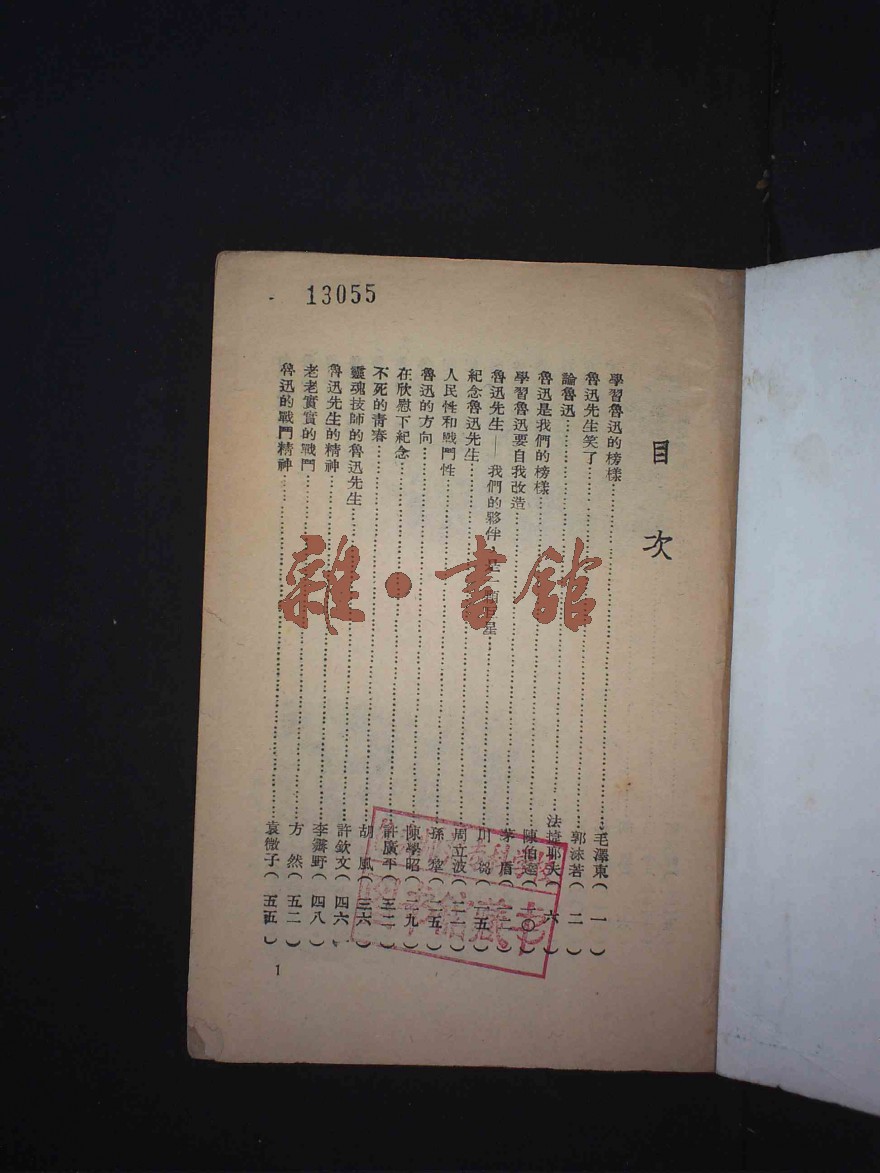 13055
目次
學習魯迅的榜樣……毛澤東(一)
魯迅先生笑了……郭沫若(二)
論魯迅……法捷耶夫(六)
魯迅是我們的榜樣……陳伯達(一〇)
學習魯迅要自我改造……茅盾(一二)
魯迅先生——我們的夥伴 星……川(一五)
紀念魯迅先生……周立波(二一)
人民性和戰鬥性……孫犁(二五)
魯迅的方向……陳學昭(二九)
在欣慰下紀念……許廣平(三二)
不死的青春……胡風(三六)
靈魂技師的魯迅先生……許欽文(四六)
魯迅先生的精神……李霽野(四八)
老老實實的戰鬥……方然(五二)
魯迅的戰鬥精神……袁微子(五五)
1
雜·書館